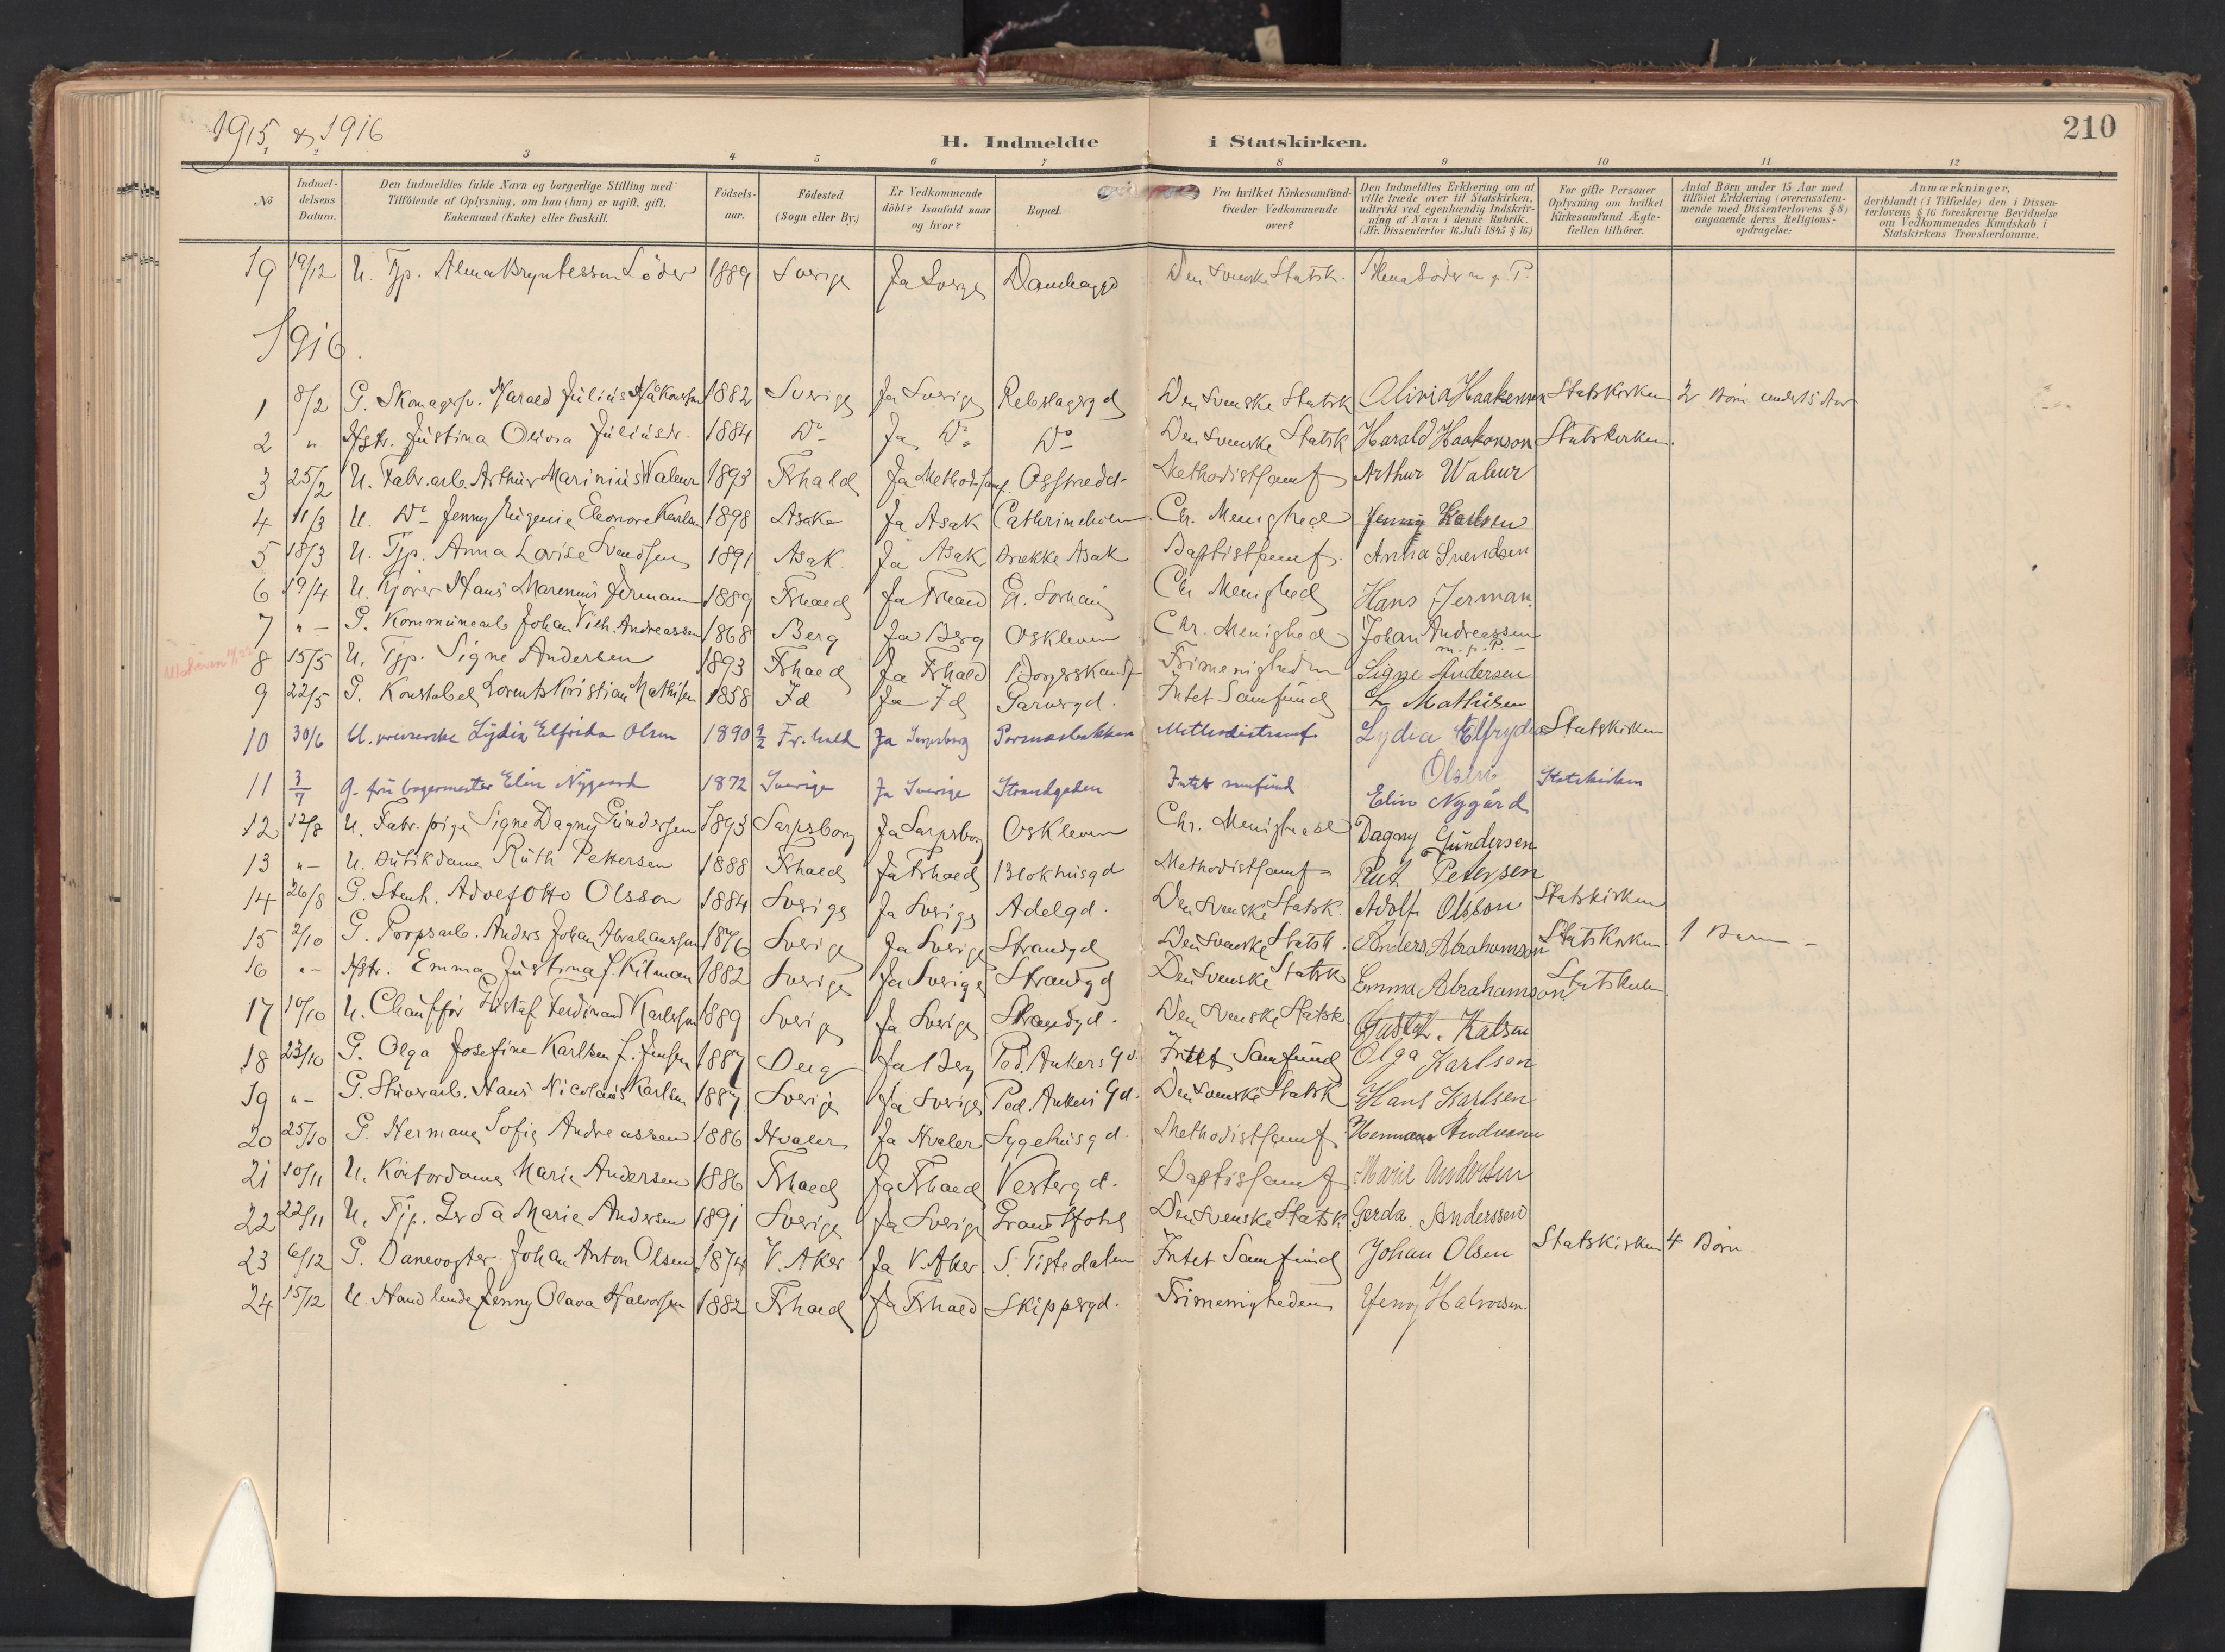 1915 & 1916
H. Indmeldte i Statskirken.
210
1 2 3 4 5 6 7 8 9 10 11 12
No
Indmeldelsens Datum.
Den Indmeldtes fulde Navn og borgerlige Stilling med Tilföiende af Oplysning, om han (hun) er ugift, gift, Enkemand (Enke) eller fraskilt.
Födselsaar.
Födested (Sogn eller By.)
Er Vedkommende döbt? Isaafald naar og hvor?
Bopæl.
Fra hvilket Kirkesamfund træder Vedkommende over?
Den Indmeldtes Erklæring om at ville træde over til Statskirken, udtrykt ved egenhændig Indskrivning af Navn i denne Rubrik. (Jfr. Dissenterlov 16. Juli 1845 § 16.)
For gifte Personer Oplysning om hvilket Kirkesamfund Ægtefællen tilhörer.
Antal Börn under 15 Aar med tilföiet Erklæring (overensstemmende med Dissenterlovens § 8) angaaende deres Religionsopdragelse.
Anmærkninger, deriblandt (i Tilfælde) den i Dissenterlovens § 16 foreskrevne Bevidnelse om Vedkommendes Kundskab i Statskirkens Troeslærdomme.
19 19/12 U. Tjp. Alma Bryntesson Söder 1889 Sverige Ja Sverige Damhaugd Den Svenske Statsk. Alma Söder m. p. P.
1916.
1 8/2 G. Skomagersv. Harald Julius Håkonsson 1882 Sverige Ja Sverige Rebslagergd Den Svenske Statsk Olivia Haakonsen Statskirken 2 Börn under 15 Aar
2 " Hstr. Justina Olivia Juliusdr. 1884 Do Ja Do Do Den Svenske Statsk Harald Haakonson Statskirken.
3 25/2 U. Fabr.arb. Arthur Marinius Waleur 1893 Frhald Ja Methodsamf. Osstredet Methodistsamf Arthur Waleur
4 11/3 U. Do Jenny Eugenie Eleonore Karlsen 1898 Asak Ja Asak Cathrineholm Chr. Menighed Jenny Karlsen
5 18/3 U. Tjp. Anna Lovise Svendsen 1891 Asak. Ja Asak Brekke Asak Baptistsamf. Anna Svendsen
6 19/4 U. Kjörer Hans Marenius Jerman 1889 Frhald Ja Frhald Gl. Sorhaug Chr Menighed Hans Jerman.
7 " - G. Kommunearb Johan Vilh. Andreassen 1868 Berg Ja Berg Oskleven Chr. Menighed Johan Andreassen m. p. P. -
8 15/5 U. Tjp. Signe Andersen 1893 Frhald Ja Frhald Borgerskandsen Frimenigheden Signe Andersen
9 22/5 G. Konstabel Lorents Kristian Mathisen 1858 Id Ja Id Garvergd. Intet Samfund L Mathisen
10 30/6 U. Lydia Elfrida Olsen 1890 9/2 Fr.hald Ja Sarpsborg Methodistsamf Lydia Elfryda Olsen Statskirken
11 3/7 G. fru bagermester Elin Nygaard 1872 Sverige Ja Sverige Strandgaden Intet samfund Elin Nygård Statskirken
12 12/8 U. Fabr.pige Signe Dagny Gundersen 1893 Sarpsborg Ja Sarpsborg Oskleven Chr. Menighed Dagny Gundersen
13 " - U. Butikdame Ruth Pettersen 1888 Frhald Ja Frhald Blokhusgd Methodistsamf Rut Petersen
14 26/8 G. Stenh. Adolf Otto Olsson 1884 Sverige Ja Sverige Adelgd. Den Svenske Statsk. Adolf Olsson Statskirken
15 2/10 G. Propsarb. Anders Johan Abrahamsson 1876 Sverige Ja Sverige Strandgd Den Svenske Statsk. Anders Abrahamson Statskirken. 1 Barn -
16 " - Hstr. Emma Justina f. Kilman 1882 Sverige Ja Sverige Strandgd Den Svenske Statsk Emma Abrahamson Statskirken.
17 10/10 U. Chauffør Gustaf Ferdinand Karlsson 1889 Sverige Ja Sverige Strandgd. Den Svenske Statsk Gustaf. Kalsen
18 23/10 G. Olga Josefine Karlsen f. Jensen 1887 Berg Ja Berg Ped. Ankers Gd. Intet Samfund Olga Karlsen
19 " - G. Stuerarb. Hans Nicolaus Karlsen 1887 Sverige Ja Sverige Ped. Ankers Gd. Den Svenske Statsk Hans Karlsen
20 25/10 G. Hermana Sofie Andreassen 1886 Hvaler Ja Hvaler Sygehusgd. Methodistsamf. Hermana Andreasen
21 10/11 U. Kontordame Marie Andersen 1886 Frhald Ja Frhald Vestergd. Baptistsamf Marie Andersen
22 22/11 U. Tjp. Gerda Marie Andersen 1891 Sverige Ja Sverige Grand Hotel Den Svenske Statsk. Gerda Anderssen
23 6/12 G. Banevogter Johan Anton Olsen 1874 V. Aker Ja V. Aker S. Tistedalen Intet Samfund Johan Olsen Statskirken 4 Börn
24 15/12 U. Handlende Jenny Olava Halvorsen 1882 Frhald Ja Frhald Skippergd. Frimenigheden Jenny Halvorsen.